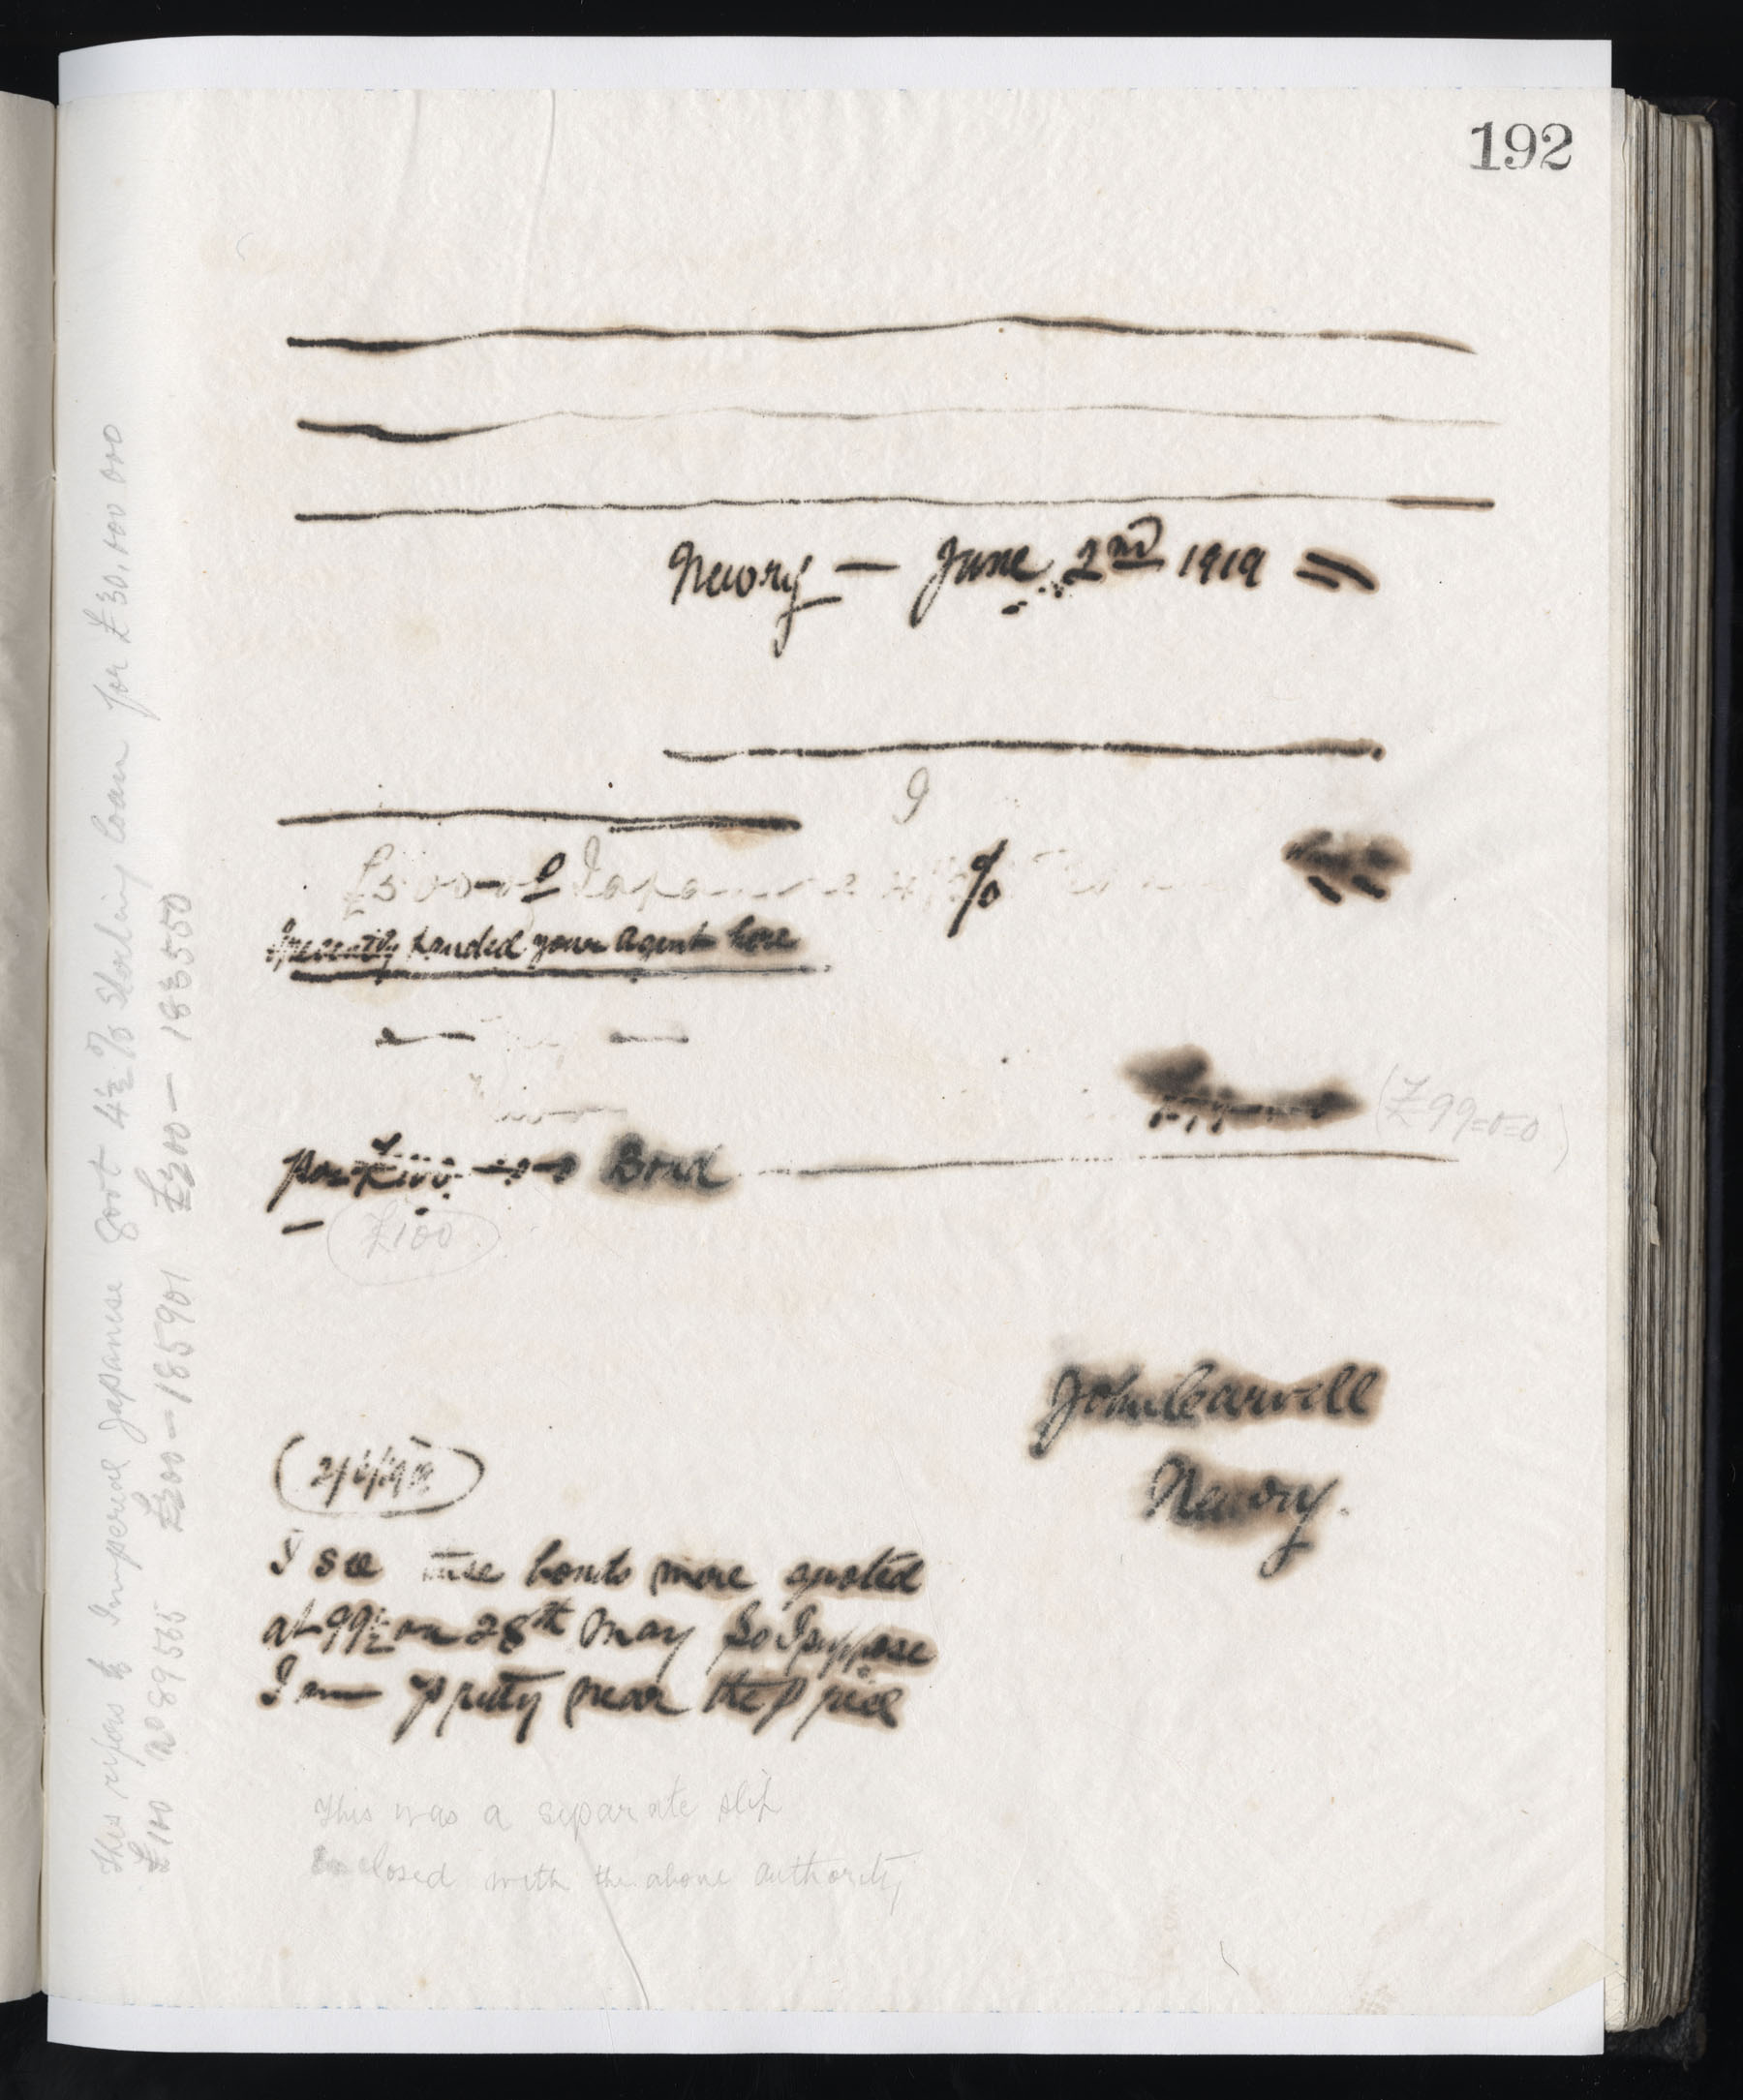 192
Newry — June 2nd 1919 =
I
£500-0-0 Japanese 4½ %
I recently handed your agent here
(£99=0=0)
per £100 -0-0 Bond
(£100)
John Carvill
Newry.
(2/6/19)
I see these bonds were quoted
at 99½ on 28th May so I suppose
I am pretty near the price
This was a separate slip
Enclosed with the above authority
This refers to Imperial Japanese Govt 4½ % Sterling Loan for £30,000 000
£100 No 89565 £200 — 185901 £200 — 183550